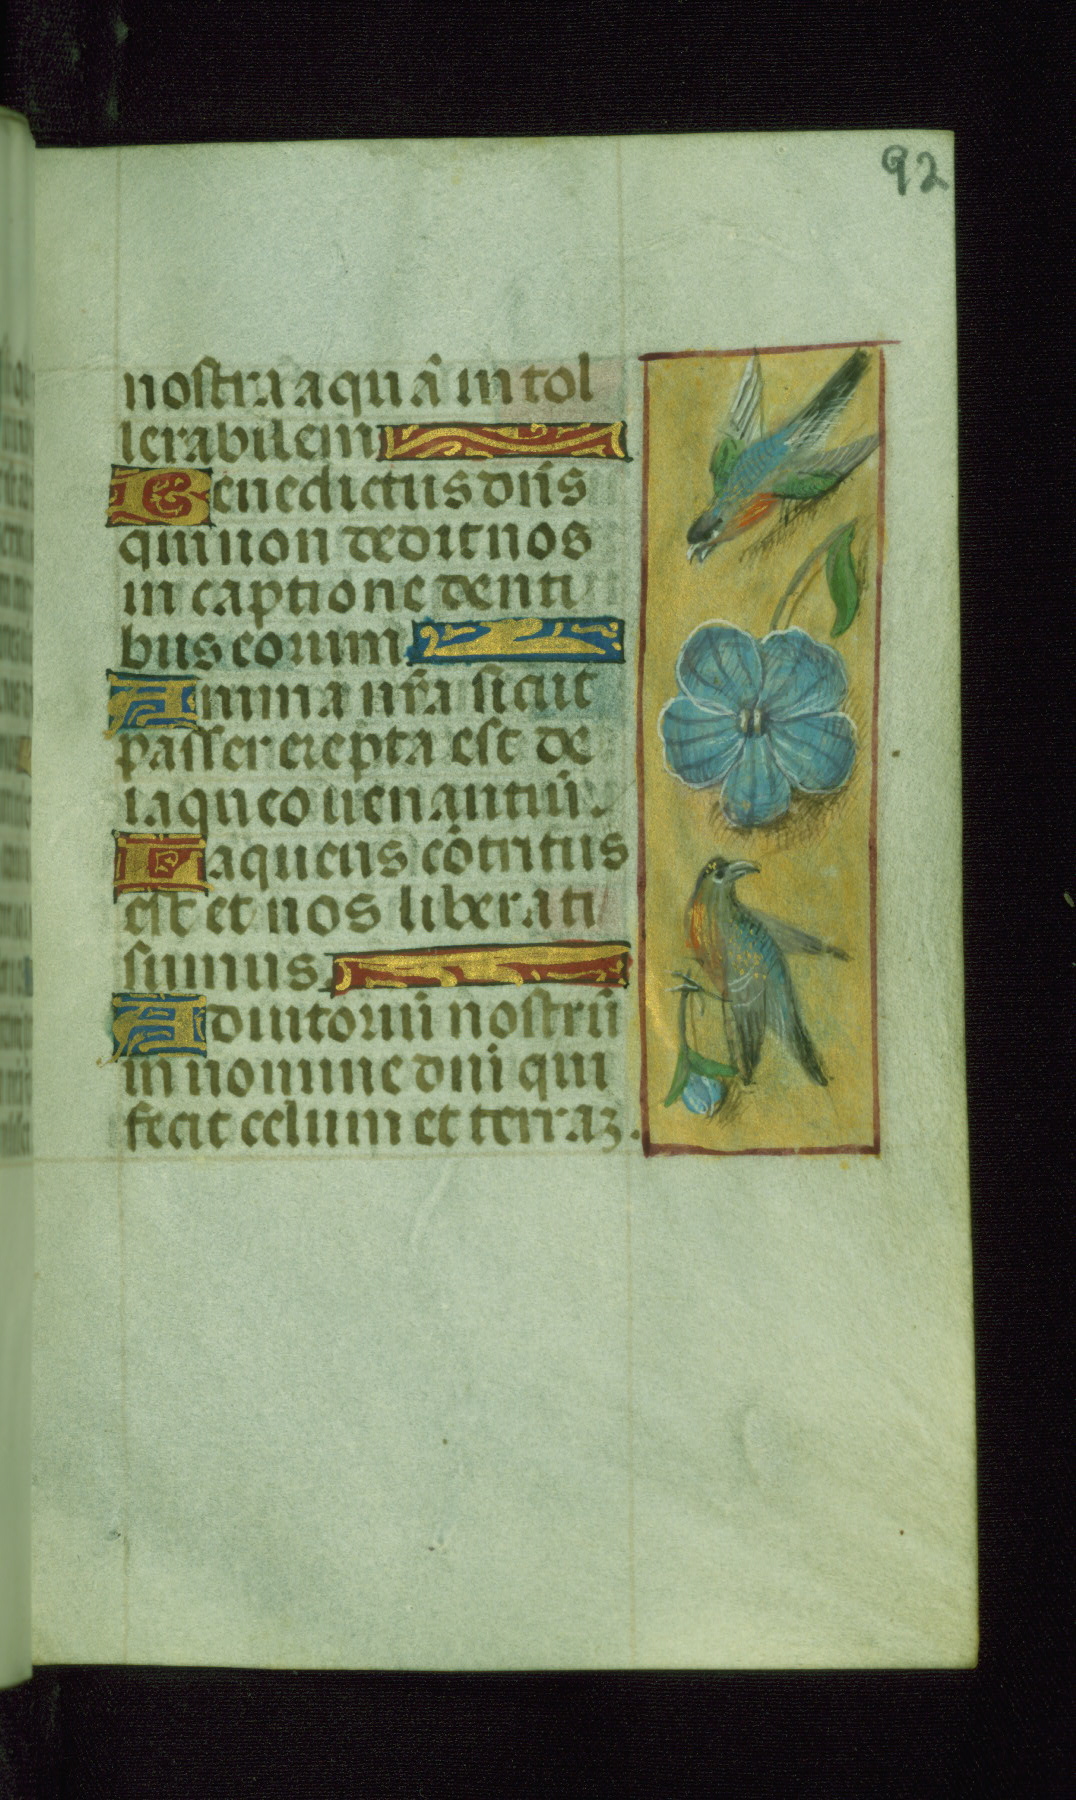 92
nostra aquā intol
lerabilem
Benedictus dn̄s
qui non dedit nos
in captione denti
bus eorum
Anima nr̄a sicut
passer erepta est de
laqueo uenantiū.
Laqueus cōtritus
est et nos liberati
sumus
Adiutoriū nostrū
in nomine dn̄i qui
fecit celum et terraꝫ.